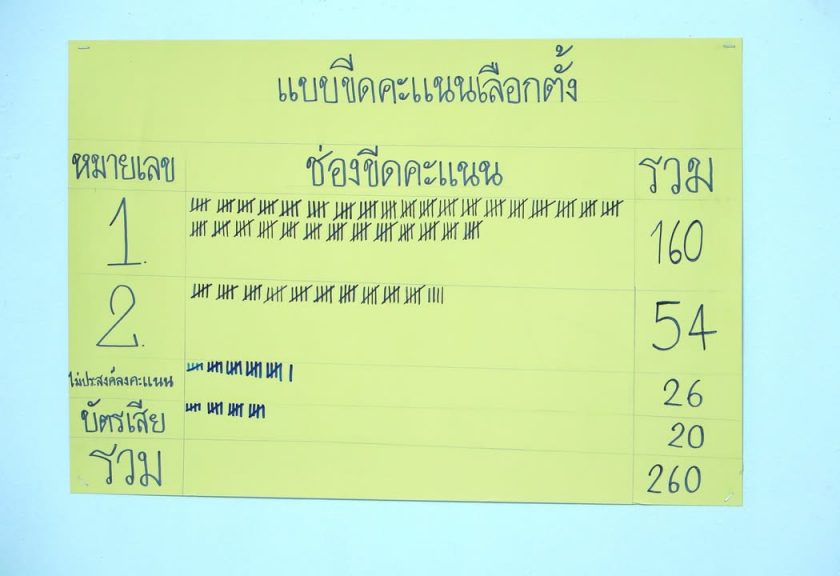 แบบขีดคะแนนเลือกตั้ง
หมายเลข ช่องขีดคะแนน รวม
1. 160
2. 54
ไม่ประสงค์ลงคะแนน 26
บัตรเสีย 20
รวม 260